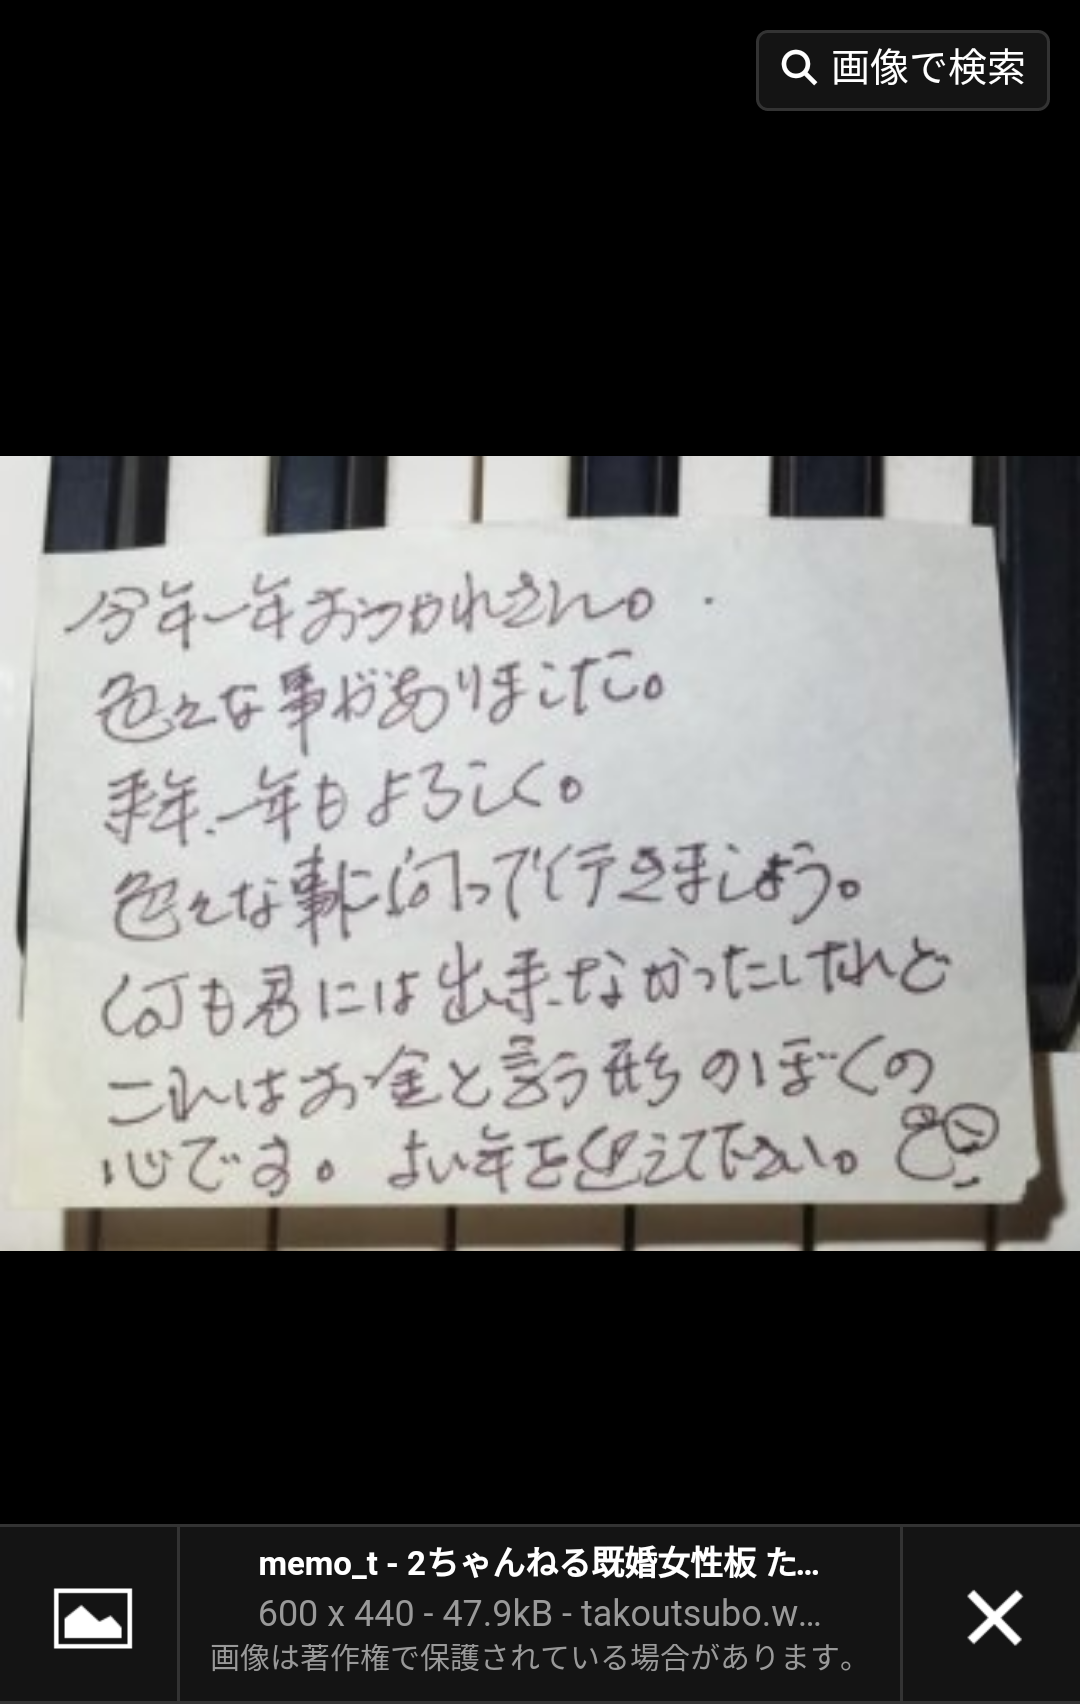 画像で検索
今年一年おつかれさん。
色々な事がありました。
来年一年もよろしく。
色々な事に向って行きましょう。
何も君には出来なかったけれど
これはお金と言う形のぼくの
心です。よい年を迎えて下さい。
memo_t - 2ちゃんねる既婚女性板 た...
600 x 440 - 47.9kB - takoutsubo.w...
画像は著作権で保護されている場合があります。